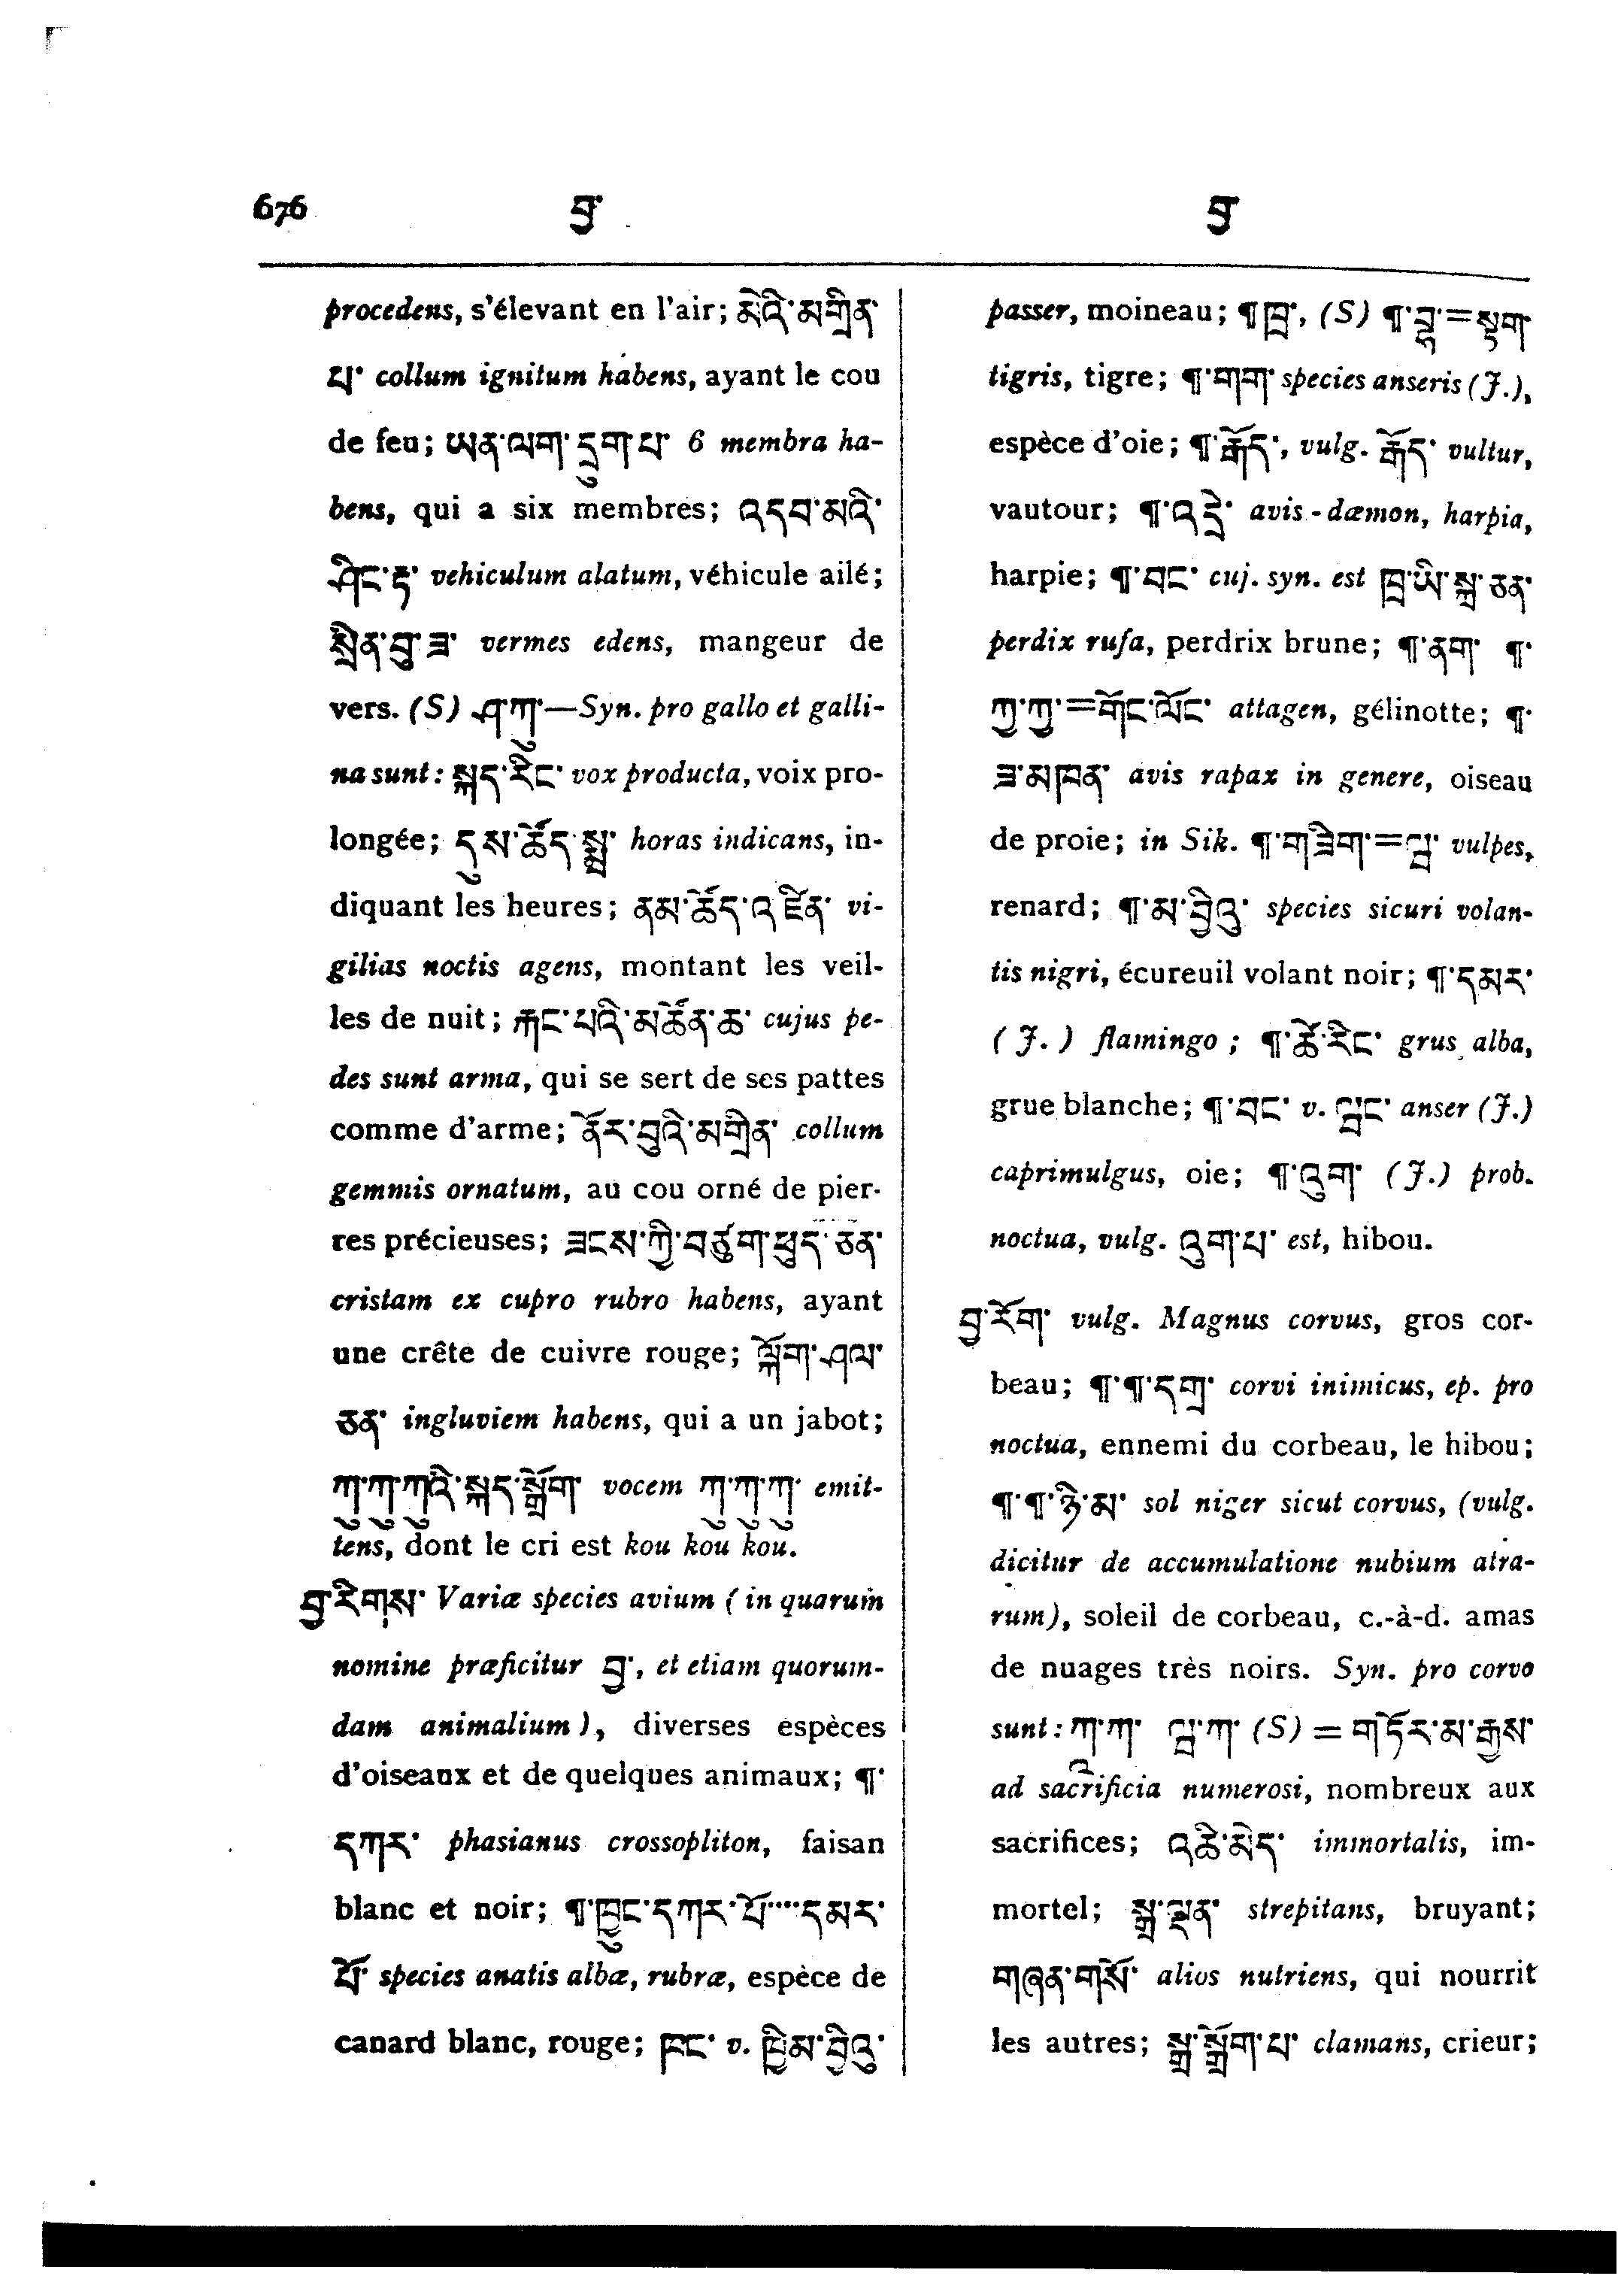 676 བྱ་ བྱ
procedens, s'élevant en l'air; མེའི་མགྲིན་
པ་ collum ignitum habens, ayant le cou
de feu; ཡན་ལག་དྲུག་པ་ 6 membra ha-
bens, qui a six membres; འདབ་མའི་
ཤིང་རྟ་ vehiculum alatum, véhicule ailé;
སྲིན་བུ་ཟ་ vermes edens, mangeur de
vers. (S) ཤ་ཀུ་—Syn. pro gallo et galli-
na sunt: སྐད་རིང་ vox producta, voix pro-
longée; དུས་ཚོད་སྨྲ་ horas indicans, in-
diquant les heures; ནམ་ཚོད་འཛིན་ vi-
gilias noctis agens, montant les veil-
les de nuit; རྐང་པའི་མཚོན་ཆ་ cujus pe-
des sunt arma, qui se sert de ses pattes
comme d'arme; ནོར་བུའི་མགྲིན་ collum
gemmis ornatum, au cou orné de pier-
res précieuses; ཟངས་ཀྱི་བཙུག་ཕུད་ཅན་
cristam ex cupro rubro habens, ayant
une crête de cuivre rouge; ལྐོག་ཤལ་
ཅན་ ingluviem habens, qui a un jabot;
ཀུ་ཀུ་ཀུའི་སྐད་སྒྲོག་ vocem ཀུ་ཀུ་ཀུ་ emit-
tens, dont le cri est kou kou kou.
བྱ་རིགས་ Variæ species avium (in quarum
nomine præficitur བྱ་, et etiam quorum-
dam animalium), diverses espèces
d'oiseaux et de quelques animaux; ¶་
དཀར་ phasianus crossopliton, faisan
blanc et noir; ¶་ཁྱུང་དཀར་པོ་...དམར་
པོ་ species anatis albæ, rubræ, espèce de
canard blanc, rouge; ཁང་ v. ཁྱིམ་བྱིའུ་
passer, moineau; ¶ཁྲ་, (S) ¶་བྱཱ་=སྟག་
tigris, tigre; ¶་གག་ species anseris (J.),
espèce d'oie; ¶་རྒོད་, vulg. རྒོད་ vultur,
vautour; ¶་འདྲེ་ avis-dæmon, harpia,
harpie; ¶་བང་ cuj. syn. est ཁྲ་ཡི་སྐྲ་ཅན་
perdix rufa, perdrix brune; ¶་ནག་ ¶་
ཀྱ་ཀྱ་=གོང་ལོང་ attagen, gélinotte; ¶་
ཟ་མཁན་ avis rapax in genere, oiseau
de proie; in Sik. ¶་གཟིག་=ཝ་ vulpes,
renard; ¶་མ་བྱིའུ་ species sicuri volan-
tis nigri, écureuil volant noir; ¶་དམར་
(J.) flamingo; ¶་ཚེ་རིང་ grus alba,
grue blanche; ¶་བང་ v. ཝང་ anser (J.)
caprimulgus, oie; ¶་འུག་ (J.) prob.
noctua, vulg. འུག་པ་ est, hibou.
བྱ་རོག་ vulg. Magnus corvus, gros cor-
beau; ¶་¶་དགྲ་ corvi inimicus, ep. pro
noctua, ennemi du corbeau, le hibou;
¶་¶་ཉི་མ་ sol niger sicut corvus, (vulg.
dicitur de accumulatione nubium atra-
rum), soleil de corbeau, c.-à-d. amas
de nuages très noirs. Syn. pro corvo
sunt: ཀ་ཀ་ ཝ་ཀ་ (S) = གཏོར་མ་རྒྱས་
ad sacrificia numerosi, nombreux aux
sacrifices; འཆི་མེད་ immortalis, im-
mortel; སྒྲ་ལྡན་ strepitans, bruyant;
གཞན་གསོ་ alios nutriens, qui nourrit
les autres; སྒྲ་སྒྲོག་པ་ clamans, crieur;